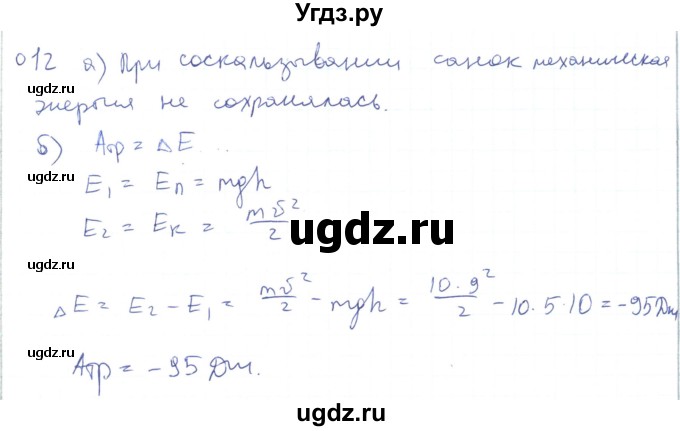 Угдз.ру
012 а) При соскальзывании санок механическая
ugdz.ru
энергия не сохранялась.
б) Aтр = ΔE ...
ugdz.ru
E₁ = Eп = mgh
E₂ = Eк = mv²/2
ugdz.ru
ugdz.ru
ΔE = E₂ - E₁ = mv²/2 - mgh = 10·9²/2 - 10·5·10 = -95 Дж
ugdz.ru
Aтр = -95 Дж.
ugdz.ru